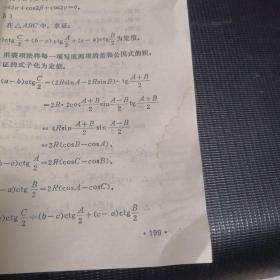 cos2α+cos2β+cos2γ=0.
在△ABC中,求证:
)ctg C/2+(b-c)ctg A/2+(c-a)ctg B/2为定值.
用裂项法将每一项写成两项的差和公因式的积,
证的式子化为定值.
(a-b)ctg C/2=(2RsinA-2RsinB)·tg (A+B)/2
=2R·2cos (A+B)/2 sin (A-B)/2 tg (A+B)/2
=4Rsin (A+B)/2 sin (A-B)/2
=2R(cosB-cosA),
b-c)ctg A/2=2R(cosC-cosB),
-a)ctg B/2=2R(cosA-cosC).
)ctg C/2+(b-c)ctg A/2+(c-a)ctg B/2
·199·